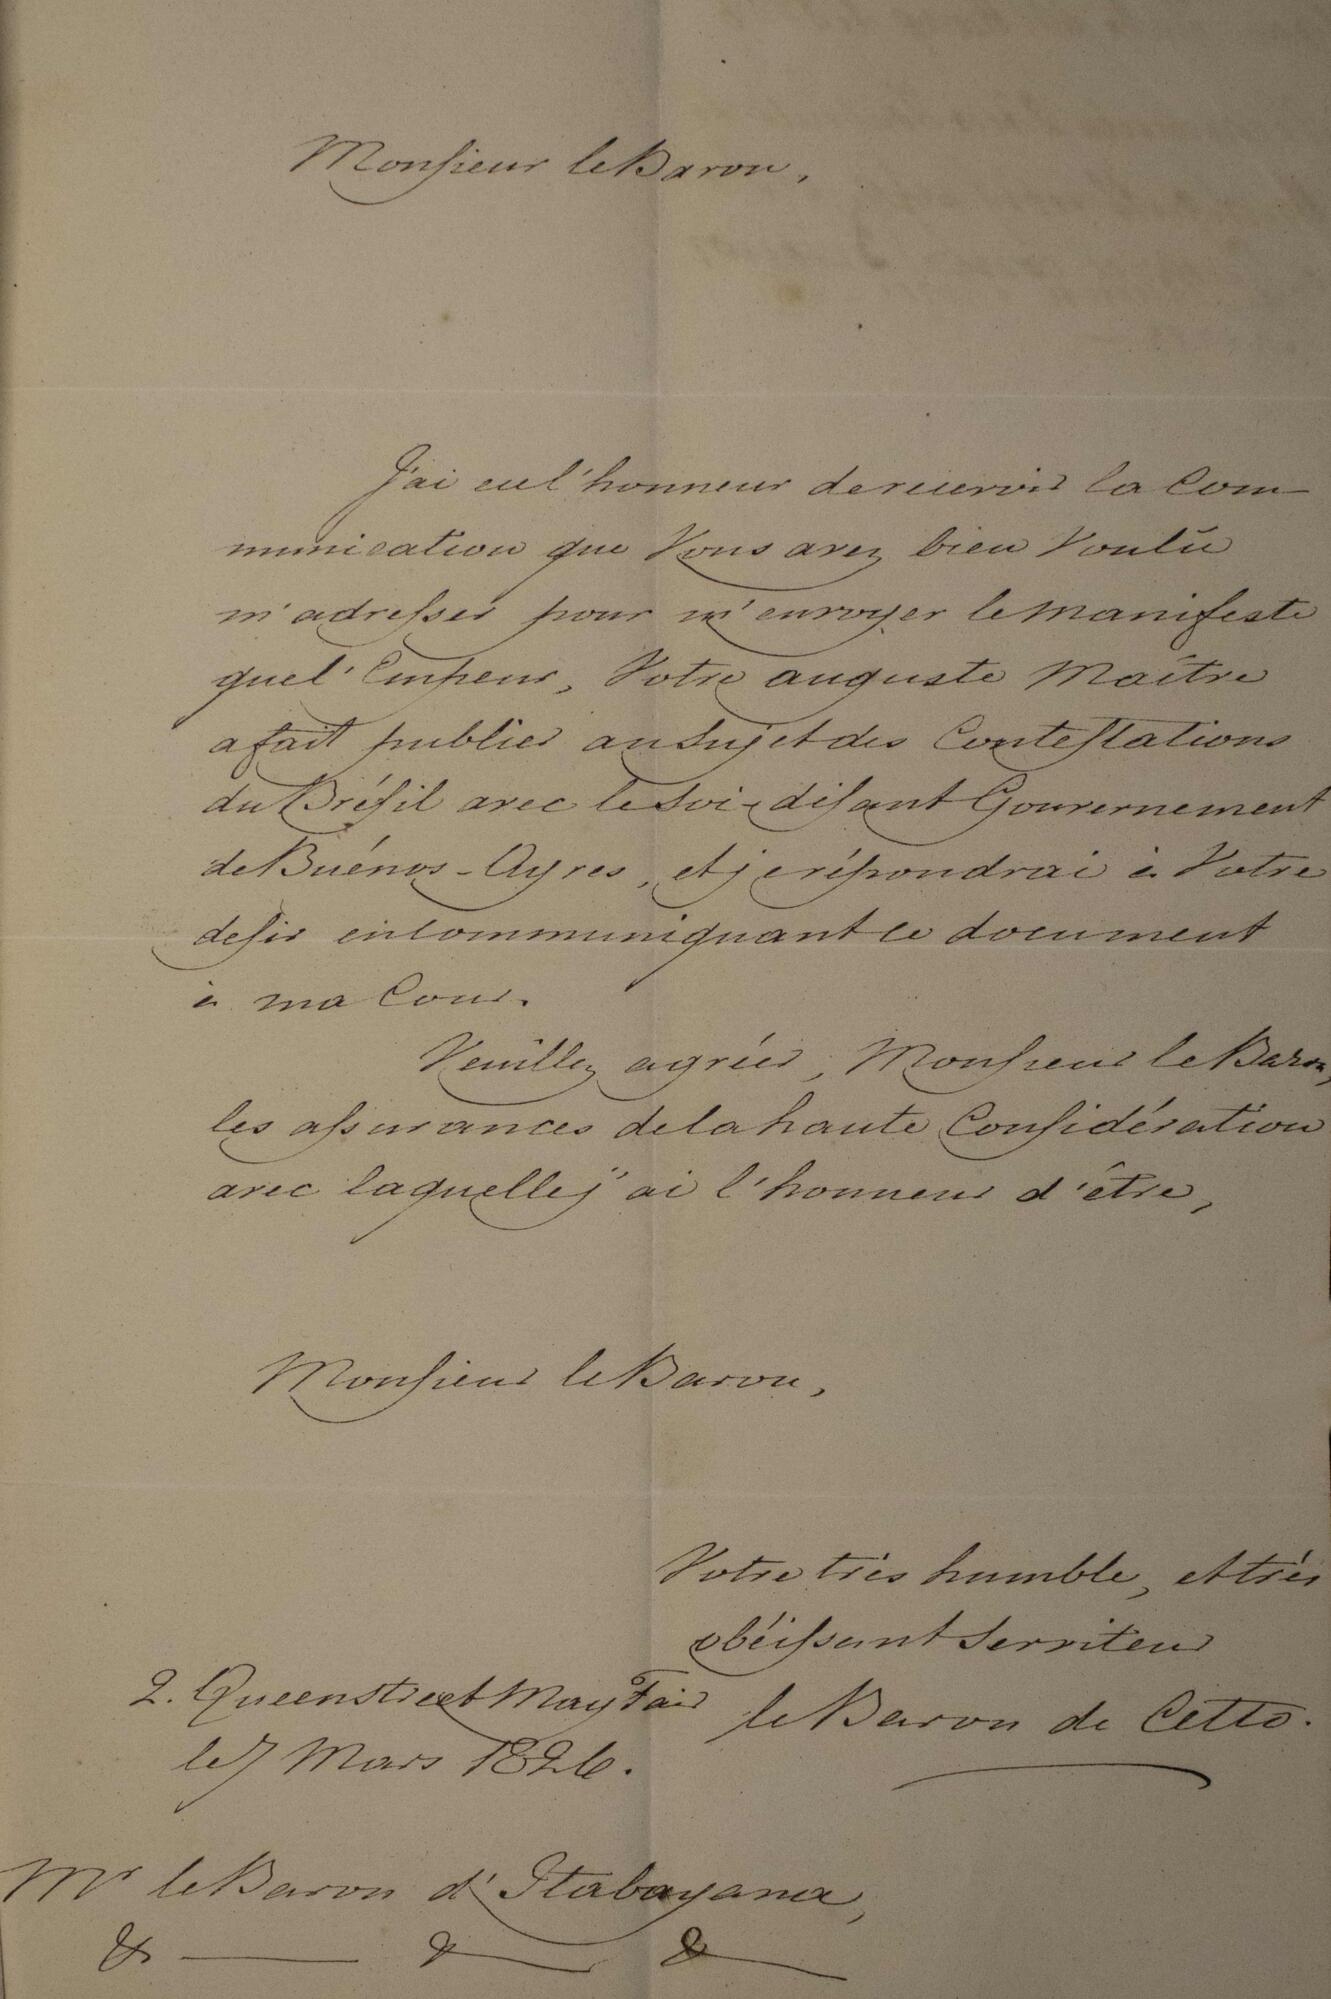 Monsieur le Baron,
J'ai eu l'honneur de recevoir la Com-
munication que Vous avez bien Voulû
m'adresser pour m'envoyer le Manifeste
que l'Empeur, Votre auguste Maître
a fait publier au Sujet des Contestations
du Brésil avec le Soi-disant Gouvernement
de Buénos-Ayres, et je répondrai à Votre
desir en communiquant ce document
à ma Cour.
Veuillez agréer, Monsieur le Baron,
les assurances de la haute Considération
avec laquelle j'ai l'honneur d'être,
Monsieur le Baron,
Votre très humble, et très
obéissant Serviteur
le Baron de Cetto.
2. Queenstreet May Fair
le 7 Mars 1826.
Mr le Baron d'Itabayana,
& — & — & —